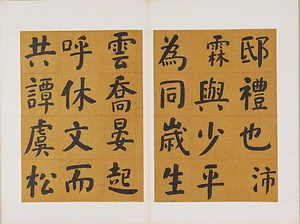 邸禮也沛
霖與少平
為同歲生
雲喬晏起
呼休文而
共譚虞松